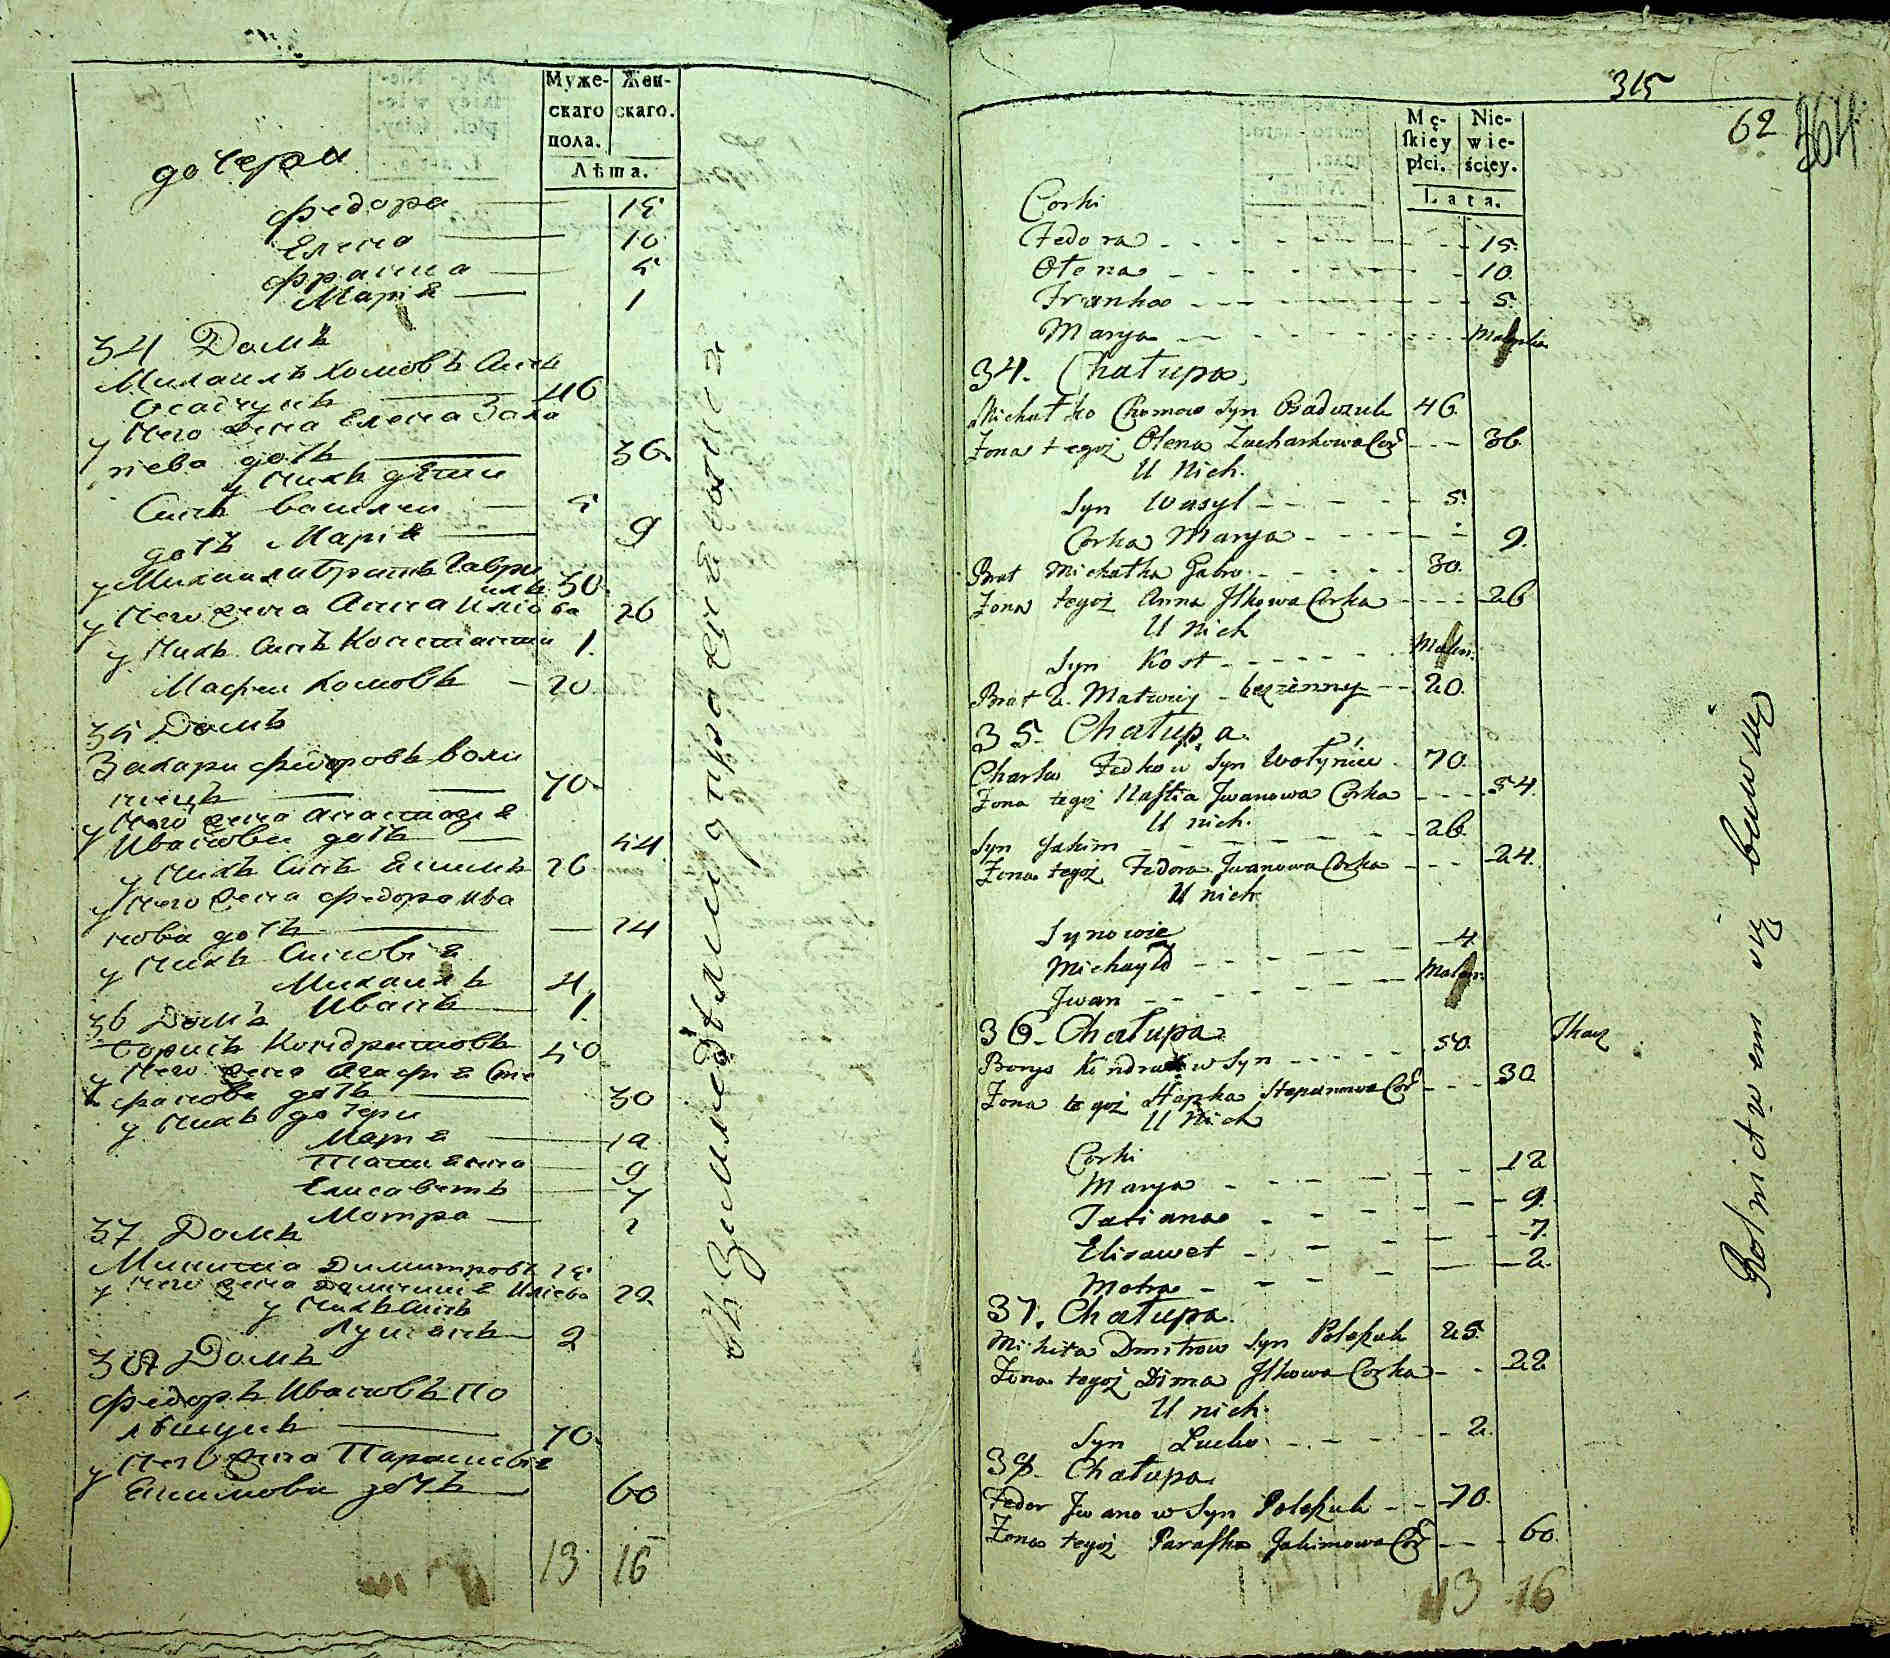 Муже-
скаго
пола.
Жен-
скаго.
Лѣта.
дочери
Федора 15
Елена 10
Франка 5
Марія 1
34 Домъ
Михаилъ Хомовъ Синъ
Осадчукъ 46
у Него жена Елена Заха
риева дочъ 36.
у Нихъ дети
Синъ Василий 5
дочъ Марія 9
у Михаила Братъ Гаври
илъ 30.
у Него жена Анна Иліова 26
у Нихъ Синъ Константин 1.
Матфеи Хомовъ 20.
35 Домъ
Захари Федоровъ Воли
нецъ 70.
у Него жена Анастазія
Иванова дочъ 54
у Нихъ Синъ Екимъ 26
у Него жена Федора Ива
нова дочъ 24
у Нихъ Синовія
Михаилъ 4.
Иванъ 1.
36 Домъ
Борисъ Кондратовъ 50
у Него жена Агафія Сте
фанова дочъ 30
у Нихъ дочери
Марія 12
Татіанна 9
Елисаветъ 7
Мотра 2
37 Домъ
Микита Димитровъ 25
у Него жена Иліева 22.
у Нихъ Синъ
Лукіанъ 2
38 Домъ
Федоръ Ивановъ По
лѣщукъ 70.
у Него жена Параскевія
Екимова дочъ 60
13 16
315
62
364
Mę-
ſkiey
płci.
Nie-
wie-
ściey.
Lata.
Corki
Fedora 15.
Ołena 10.
Franka 5.
Marya
34. Chałupa.
Michałko Chomow Syn Osadczuk 46.
Żona tegoż Ołena Zacharkowa Cor 36.
U Nich.
Syn Wasyl 5.
Corka Marya 9.
Brat Michałka Gabro 30.
Żona tegoż Anna Jlkowa Corka 26
U Nich
Syn Kost
Brat 2. Matwiy bezżenny 20.
35. Chałupa.
Charko Fedkow Syn Wołyniec 70.
Żona tegoż Naſtia Jwanowa Corka 54.
U nich.
Syn Jakim 26.
Żona tegoż Fedora Jwanowa Corka 24.
U nich
Synowie
Michayło 4.
Jwan
36. Chałupa
Borys Kindratow Syn 50. Tkacz
Żona tegoż Hapka Stepanowa Cor 30
U Nich
Corki
Marya 12
Tatiana 9.
Elizawet 7.
Motra 2.
37. Chałupa.
Mikita Dmitrow Syn Poleszuk 25.
Żona tegoż Dima Jlkowa Corka 22
U nich.
Syn Lucko 2.
38. Chałupa
Fedor Jwanow Syn Poleszuk 70.
Żona tegoż Paraſka Jakimowa Cor 60.
13 16
Rolnictwem się bawiący